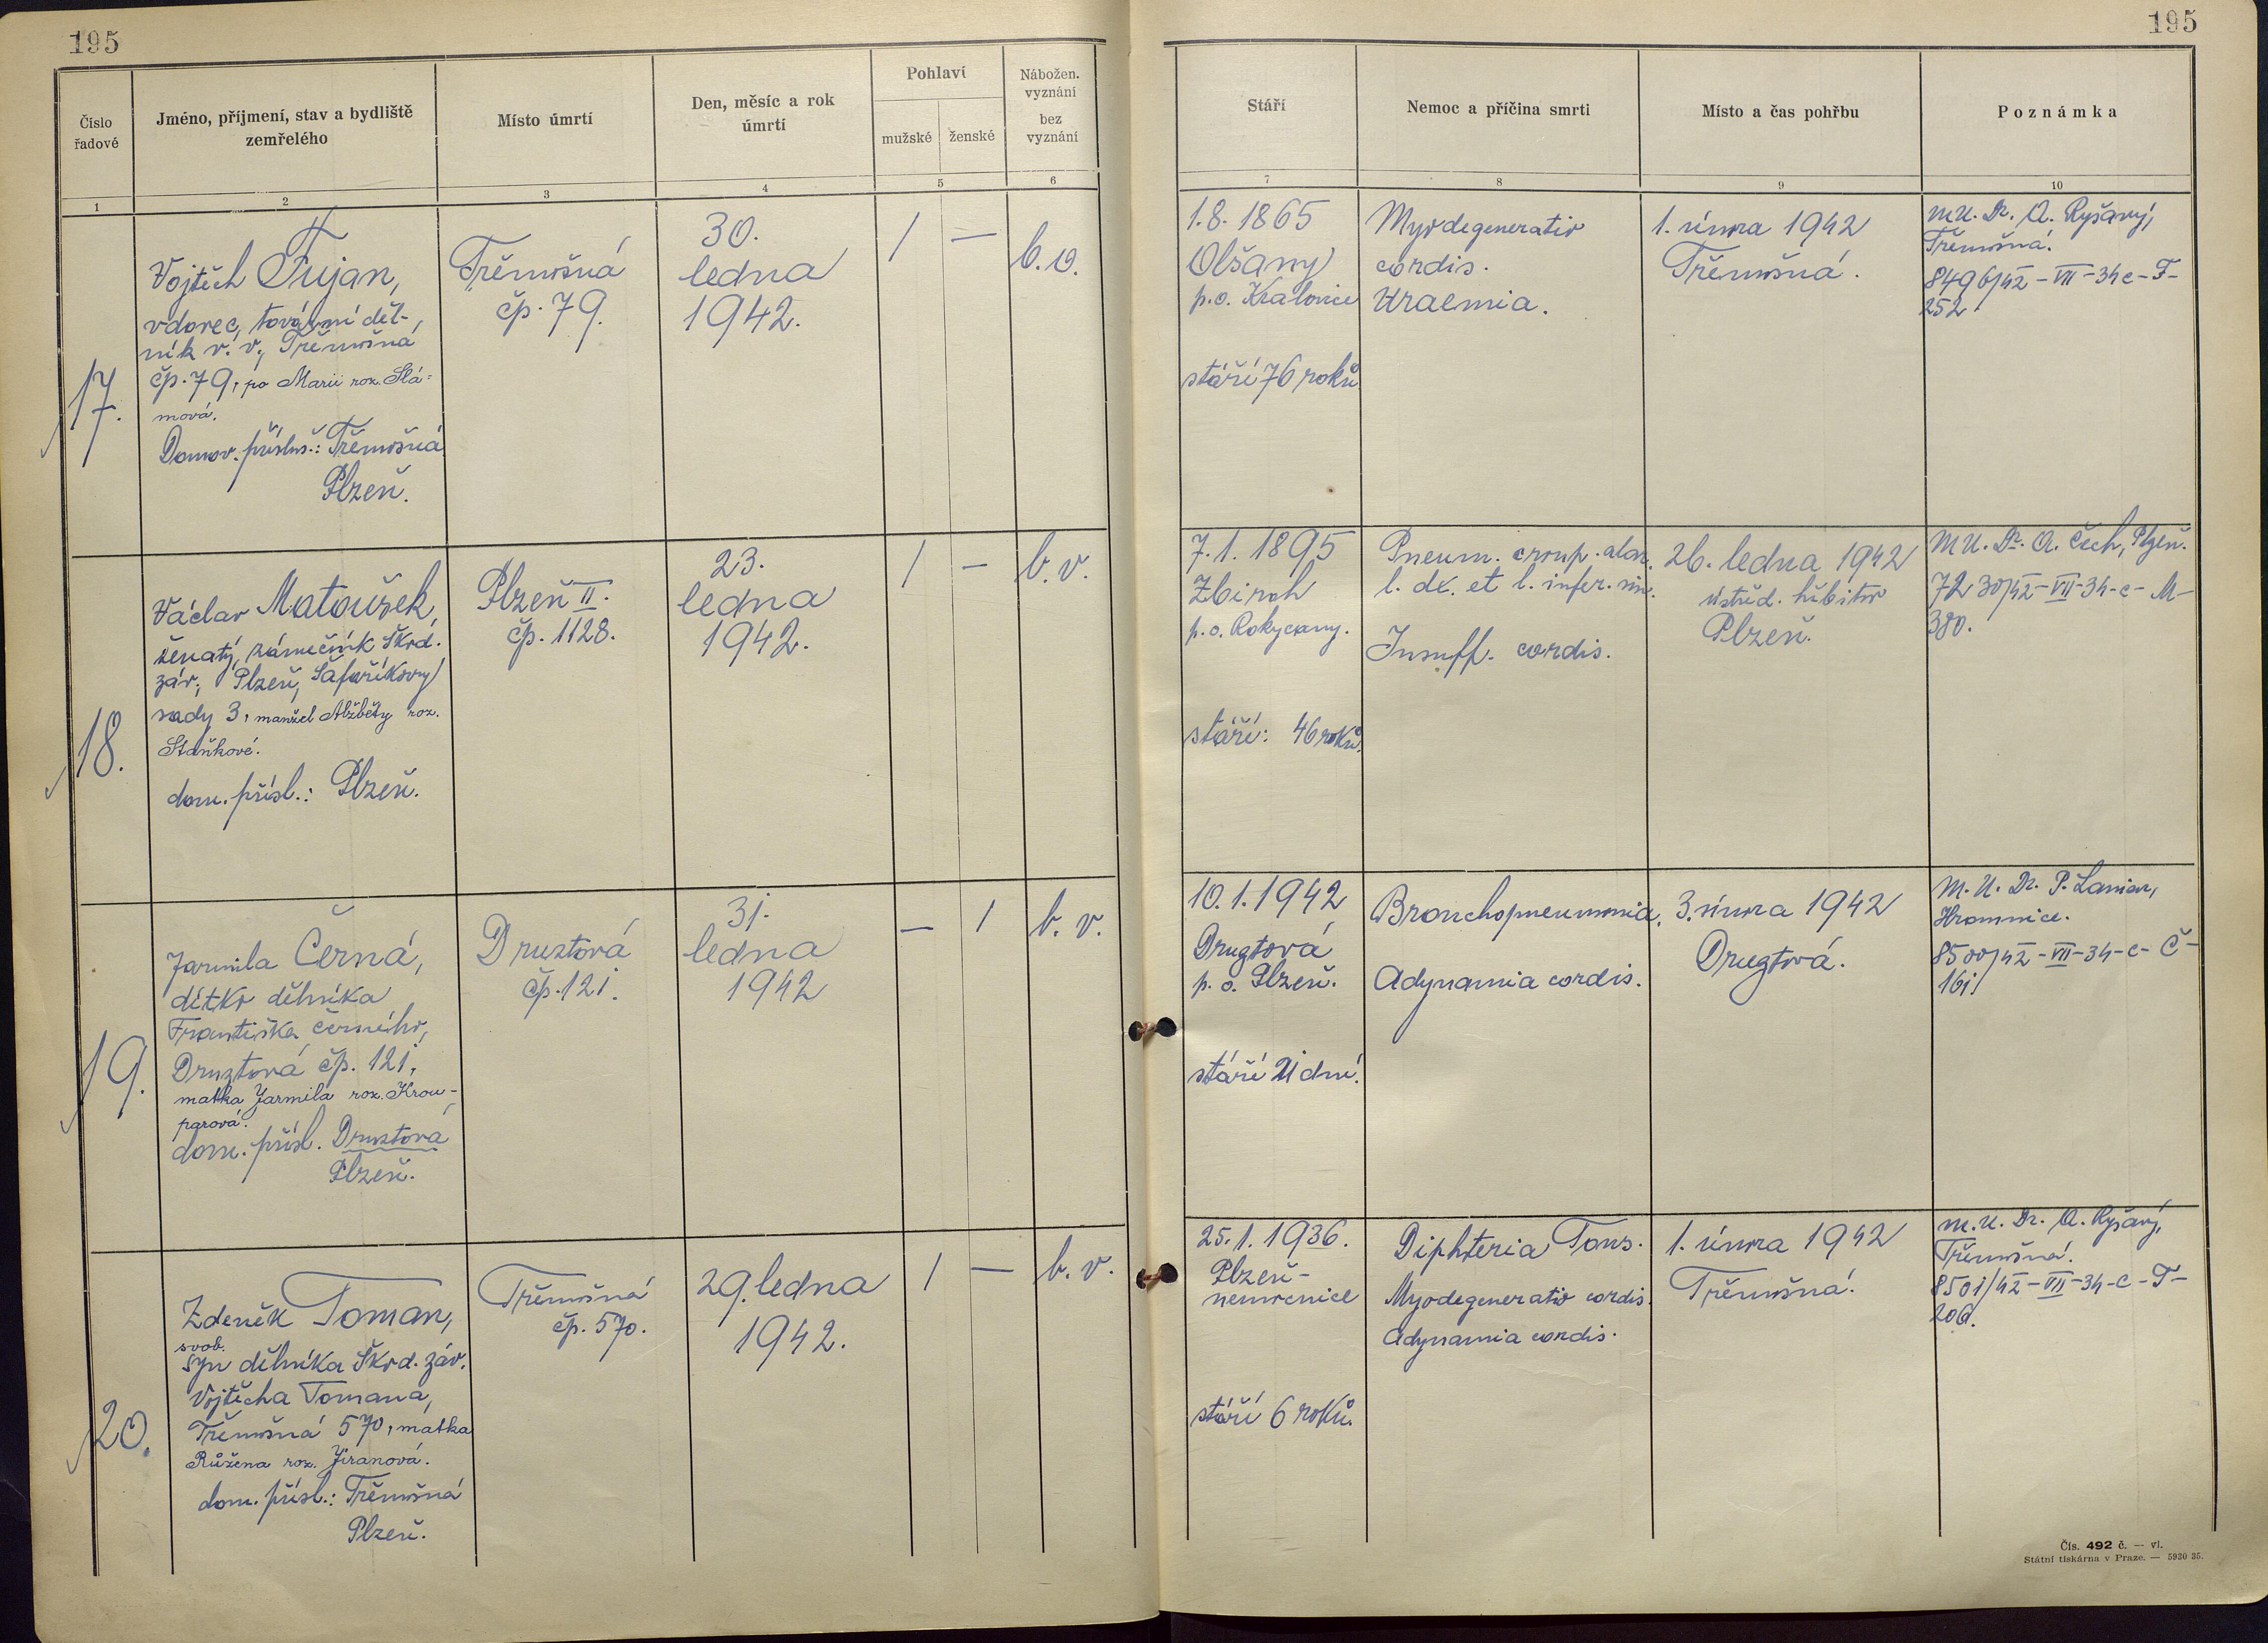 195
195
Číslo
řadové
Jméno, příjmení, stav a bydliště
zemřelého
Místo úmrtí
Den, měsíc a rok
úmrtí
Pohlaví
mužské
ženské
Nábožen.
vyznání
bez
vyznání
Stáří
Nemoc a příčina smrti
Místo a čas pohřbu
Poznámka
1
2
3
4
5
6
7
8
9
10
17.
Vojtěch Fujan,
vdovec, tovární děl-
ník v. v., Třemošná
čp. 79, po Marii roz. Slá-
mová.
Domov. přísluš.: Třemošná
Plzeň.
Třemošná
čp. 79.
30.
ledna
1942.
1
—
b.v.
1.8. 1865
Olšany
p.o. Kralovice
stáří 76 roků
Myodegeneratio
cordis.
Uraemia.
1. února 1942
Třemošná.
MU. Dr. A. Ryšavý,
Třemošná.
8496/42 – VII – 34 c – F –
252
18.
Václav Matoušek,
ženatý, zámečník Škod.
záv., Plzeň, Šafaříkovy
sady 3, manžel Alžběty roz.
Staňkové.
dom. přísl.: Plzeň.
Plzeň II.
čp. 1128.
23.
ledna
1942.
1
—
b.v.
7.1. 1895
Zbiroh
p.o. Rokycany.
stáří: 46 roků.
Pneum. croup. alar.
l. dx. et l. infer. sin.
Insuff. cordis.
26. ledna 1942
ústřed. hřbitov
Plzeň.
MU. Dr. A. Čech, Plzeň.
7230/42 – VII – 34 – c – M –
380.
19.
Jarmila Černá,
dítko dělníka
Františka Černého,
Druztová čp. 121,
matka Jarmila roz. Krou-
parová.
dom. přísl. Druztová
Plzeň.
Druztová
čp. 121.
31.
ledna
1942
—
1
b. v.
10.1.1942
Druztová
p. o. Plzeň.
stáří 21 dní.
Bronchopneumonia.
Adynamia cordis.
3. února 1942
Druztová.
M. U. Dr. P.
Hromnice.
8500/42 – VII – 34 – c – Č –
161.
20.
Zdeněk Toman,
svob.
syn dělníka Škod. záv.
Vojtěcha Tomana,
Třemošná 570, matka
Růžena roz. Jíranová.
dom. přísl.: Třemošná
Plzeň.
Třemošná
čp. 570.
29. ledna
1942.
1
—
b. v.
25.1. 1936.
Plzeň –
nemocnice
stáří 6 roků.
Diphteria Tons.
Myodegeneratio cordis.
Adynamia cordis.
1. února 1942
Třemošná.
M. U. Dr. A. Ryšavý,
Třemošná.
8501/42 – VII – 34 – c – T –
Čís. 492 č. — vl.
Státní tiskárna v Praze. — 5930 35.